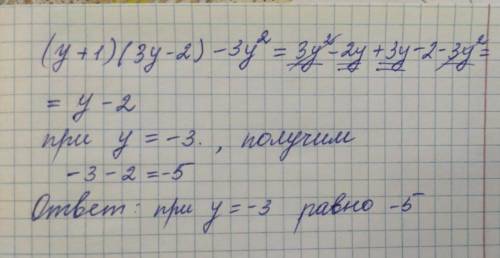 (y+1)(3y-2)-3y² = 3y²-2y+3y-2-3y² =
= y-2
при y = -3. , получим
-3-2 =-5
Ответ: при y = -3 равно -5